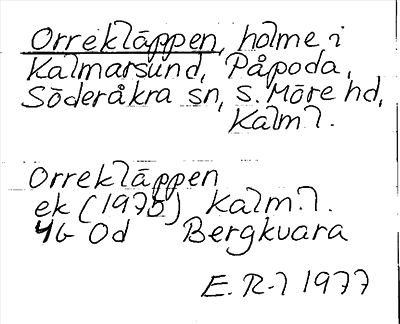 Orrekläppen, holme i
Kalmarsund, Påpoda,
Söderåkra sn, S. Möre hd,
Kalm. l.
Orrekläppen
ek (1975) Kalm. l.
4G Od Bergkvara
E. R-l 1977